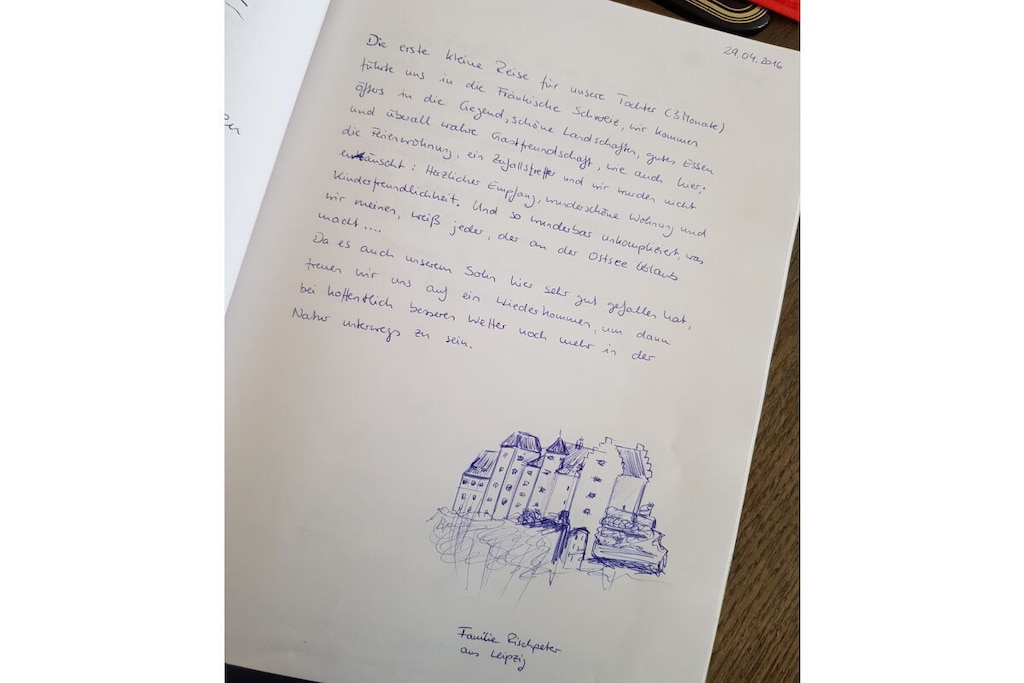 29.04.2016
Die erste kleine Reise für unsere Tochter (3 Monate)
führte uns in die Fränkische Schweiz, wir kommen
öfters in die Gegend, schöne Landschaften, gutes Essen
und überall wahre Gastfreundschaft, wie auch hier:
die Ferienwohnung, ein Zufallstreffer und wir wurden nicht
enttäuscht: Herzlicher Empfang, wunderschöne Wohnung und
Kinderfreundlichkeit. Und so wunderbar unkompliziert, was
wir meinen, weiß jeder, der an der Ostsee Urlaub
macht....
Da es auch unserem Sohn hier sehr gut gefallen hat,
freuen wir uns auf ein Wiederkommen, um dann
bei hoffentlich besseren Wetter noch mehr in der
Natur unterwegs zu sein.
Familie Rischpeter
aus Leipzig